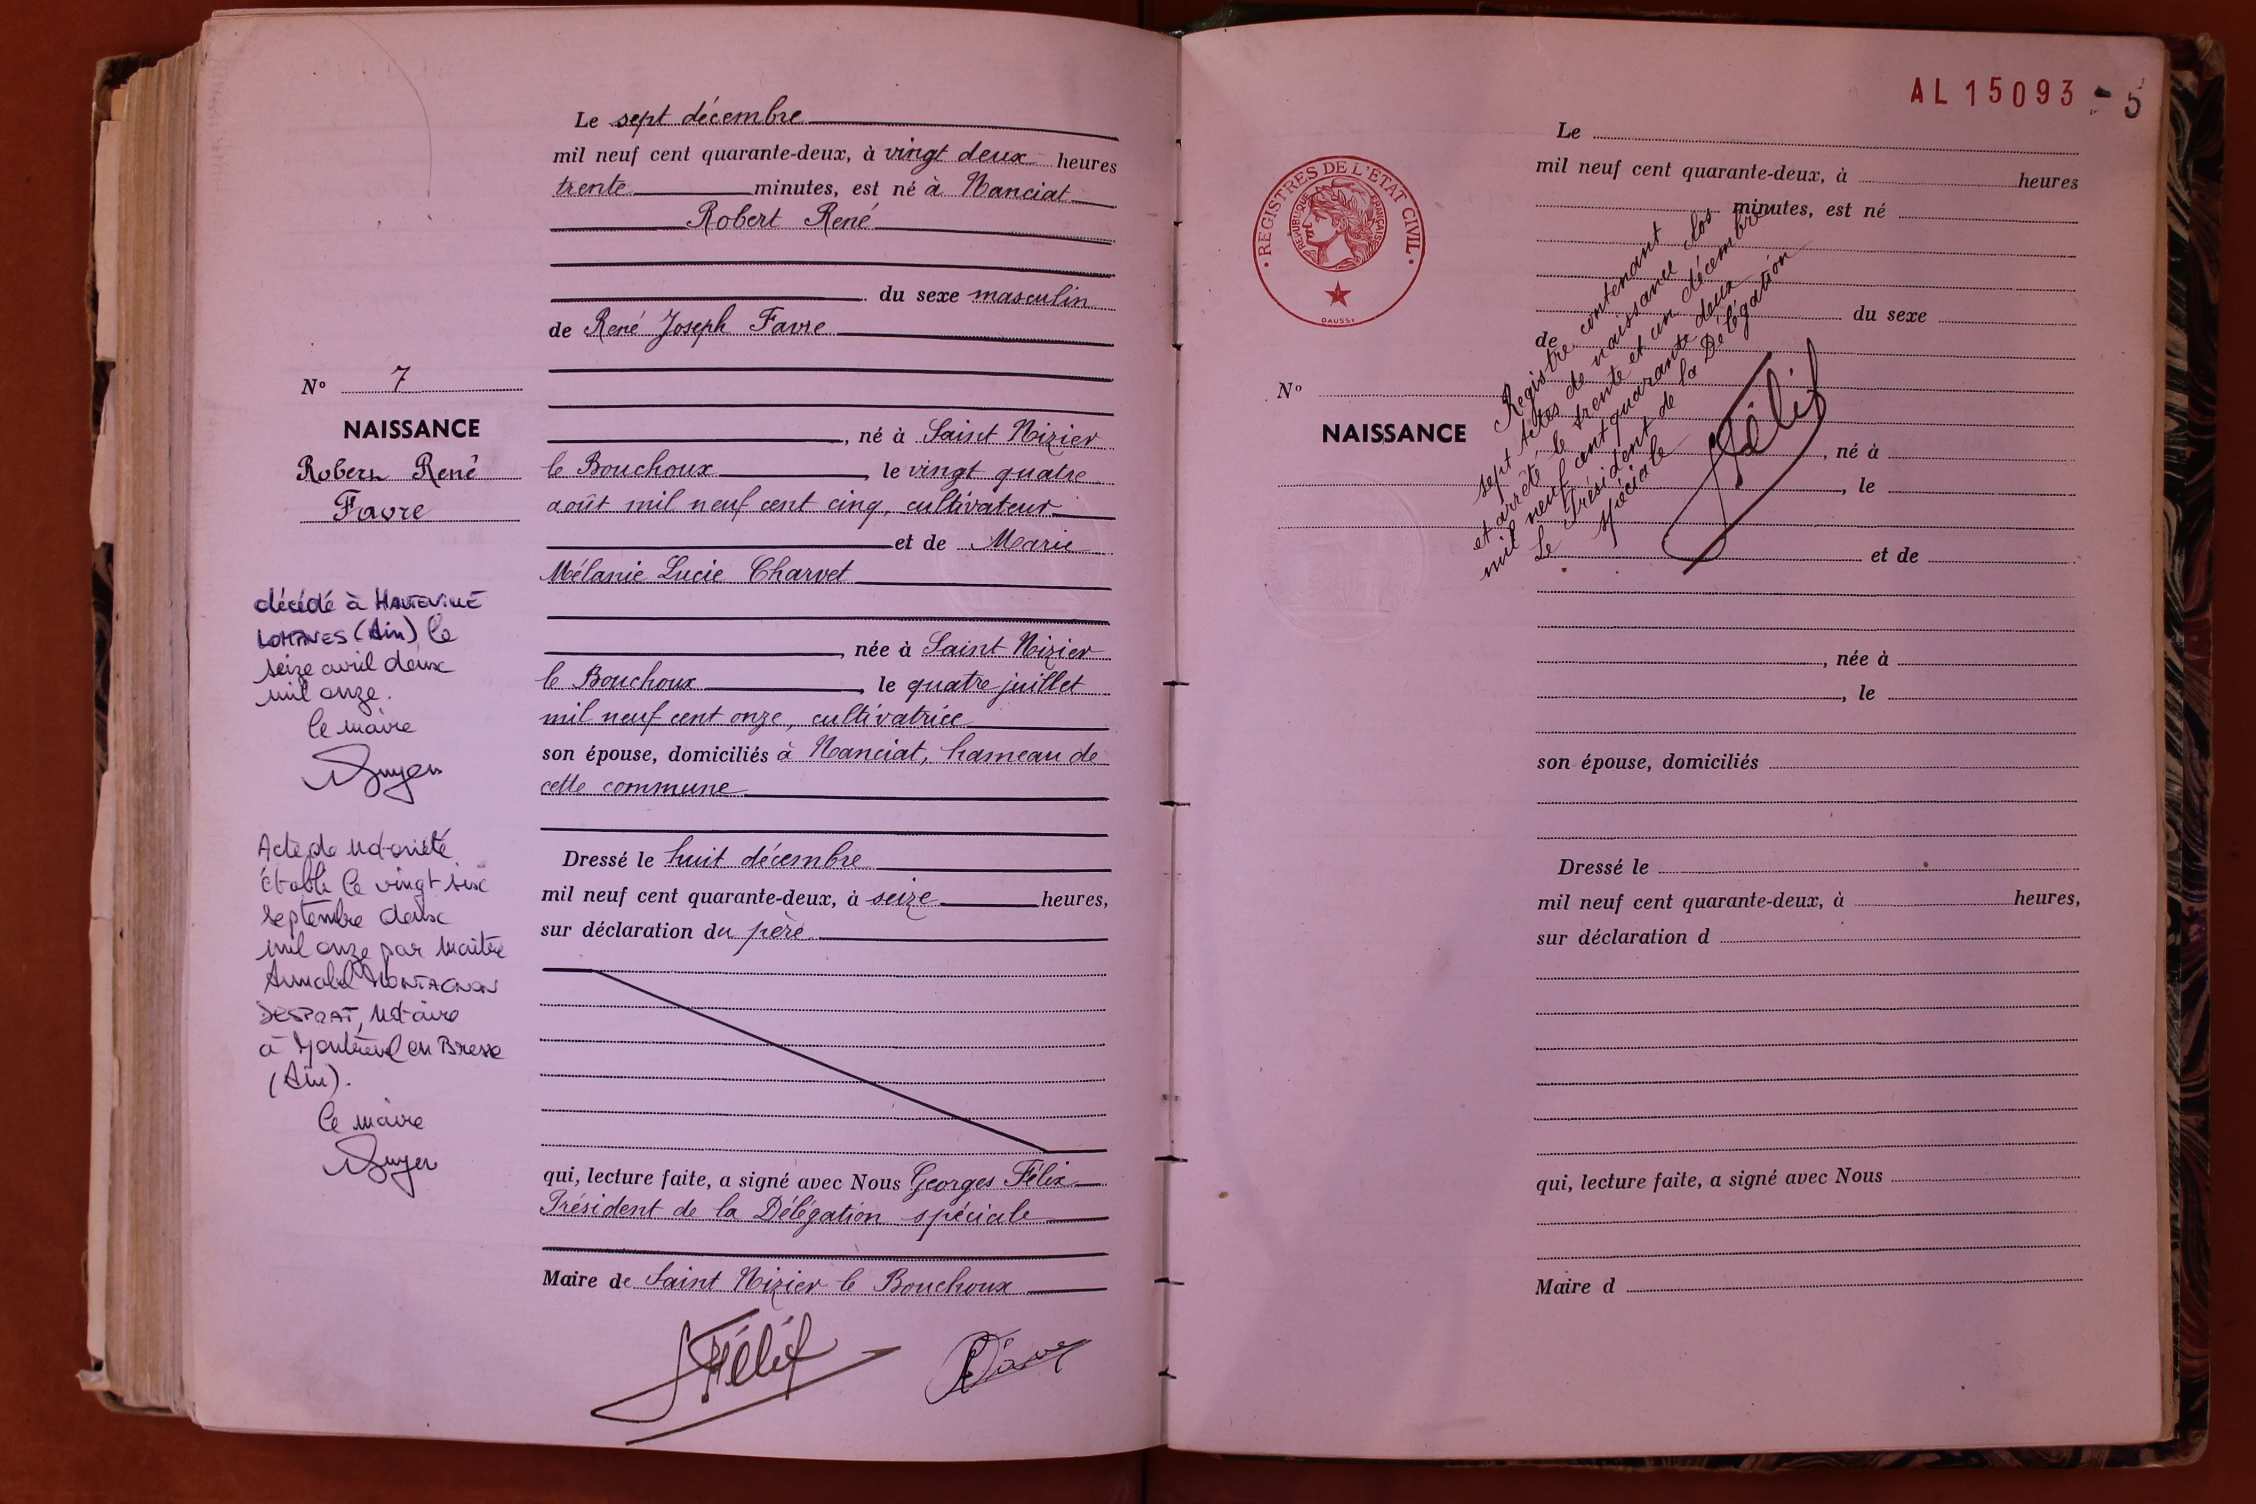 Le sept décembre
mil neuf cent quarante-deux, à vingt deux heures
trente minutes, est né à Nanciat
Robert René
du sexe masculin
de René Joseph Favre
N° 7
NAISSANCE
Robert René
Favre
, né à Saint Nizier
le Bouchoux, le vingt quatre
août mil neuf cent cinq, cultivateur
et de Marie
Mélanie Lucie Charvet
, née à Saint Nizier
le Bouchoux, le quatre juillet
mil neuf cent onze, cultivatrice
son épouse, domiciliés à Nanciat, hameau de
cette commune
Dressé le huit décembre
mil neuf cent quarante-deux, à seize heures,
sur déclaration du père
qui, lecture faite, a signé avec Nous Georges Félix
Président de la Délégation spéciale
Maire de Saint Nizier le Bouchoux
Félix
décédé à HAUTEVILLE
LOMPNES (Ain) le
seize avril deux
mil onze.
le maire
Acte de Notoriété
établi le vingt six
septembre deux
mil onze par Maître
Annabel MONTAGNON
DESPRAT, Notaire
à Montrevel en Bresse
(Ain).
le maire
AL 15093 - 5
REGISTRES DE L'ETAT CIVIL
REPUBLIQUE FRANÇAISE
DAUSSY
Le
mil neuf cent quarante-deux, à heures
minutes, est né
du sexe
de
N°
NAISSANCE
, né à
, le
et de
, née à
, le
son épouse, domiciliés
Dressé le
mil neuf cent quarante-deux, à heures,
sur déclaration d
qui, lecture faite, a signé avec Nous
Maire d
Registre contenant
sept actes de naissance clos
et arrêté le trente et un décembre
mil neuf cent quarante deux
Le Président de la Délégation
spéciale
Félix